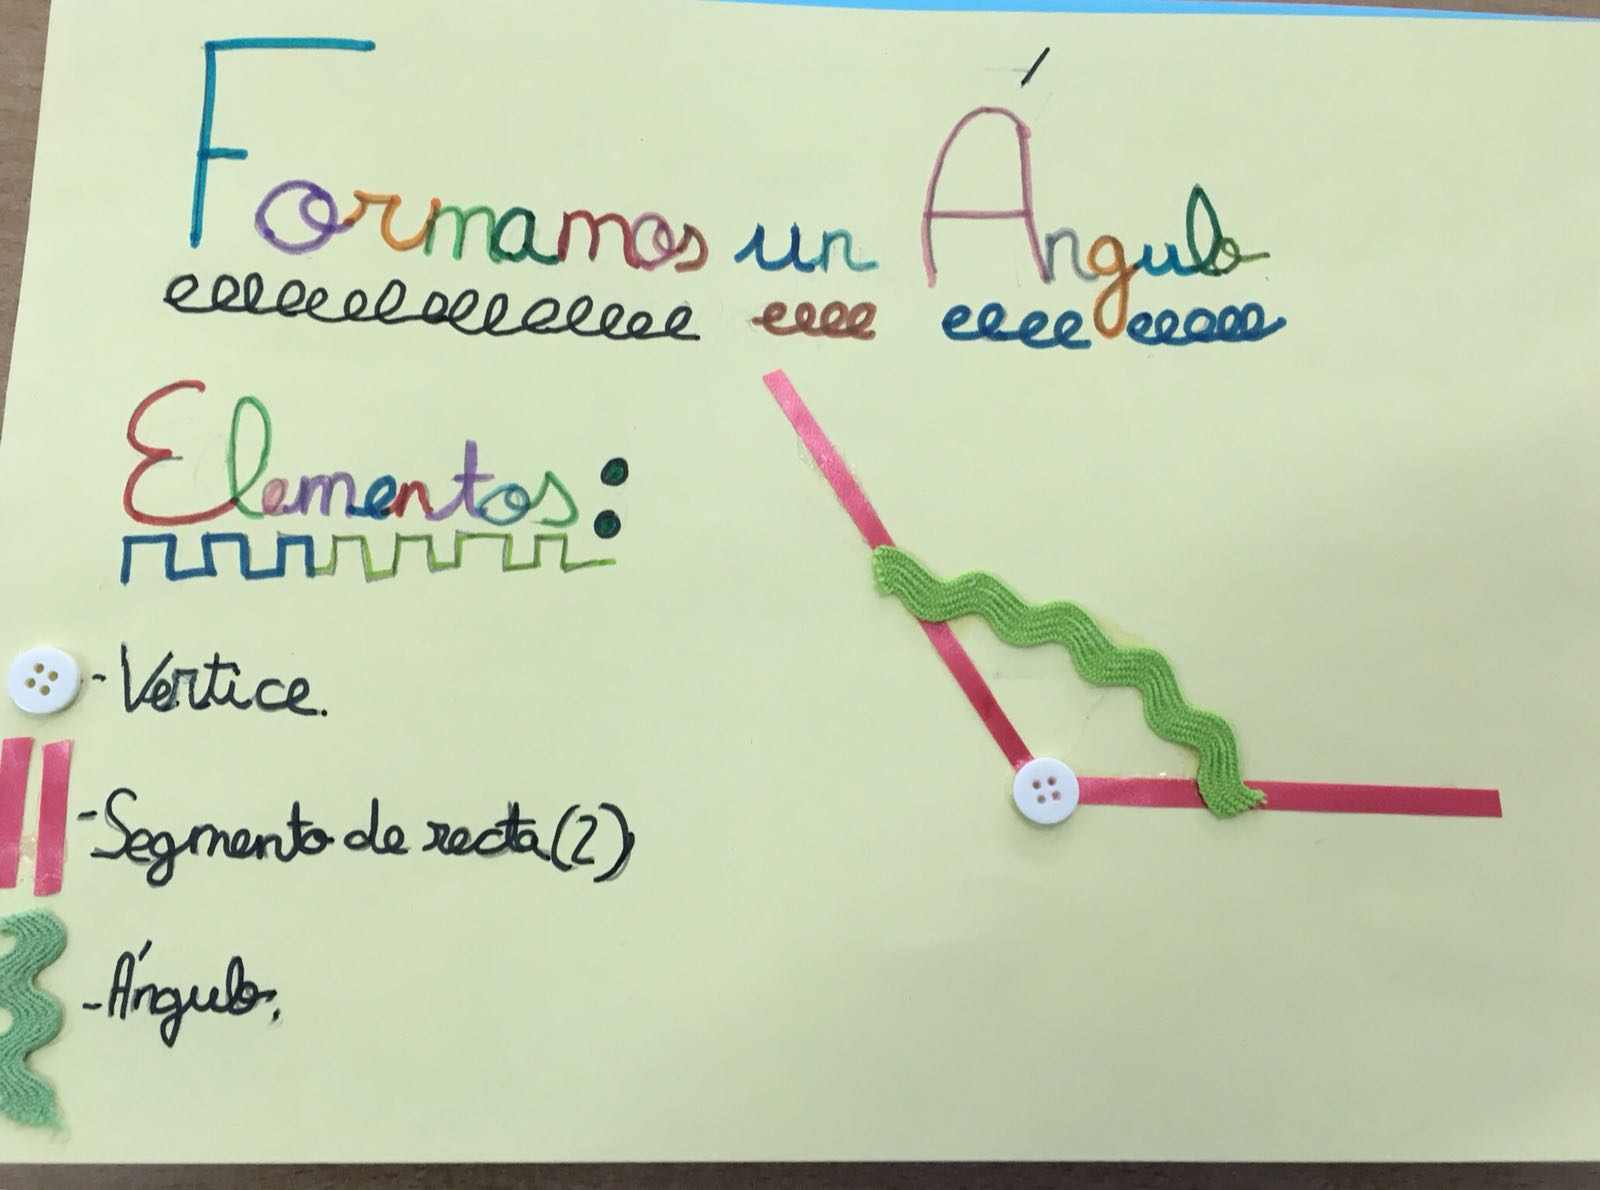 Formamos un Ángulo
Elementos:
- Vertice.
- Segmento de recta (2)
- Ángulo.